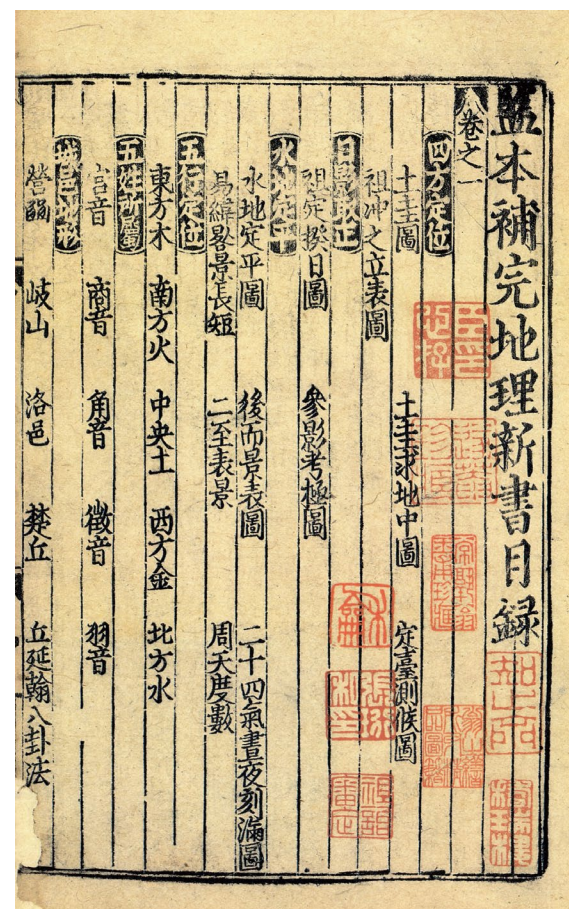 監本補完地理新書目録
卷之一
四方定位
土圭圖 土圭求地中圖 定臺測候圖
祖冲之立表圖
日影取正
祖定揆日圖 參影考極圖
水地定平
水地定平圖 後面景表圖 二十四氣晝夜刻漏圖
易緯晷景長短 二至表景 周天度數
五行定位
東方木 南方火 中央土 西方金 北方水
五姓所屬
宮音 商音 角音 徵音 羽音
城邑地形
營 岐山 洛邑 楚丘 丘延翰八卦法